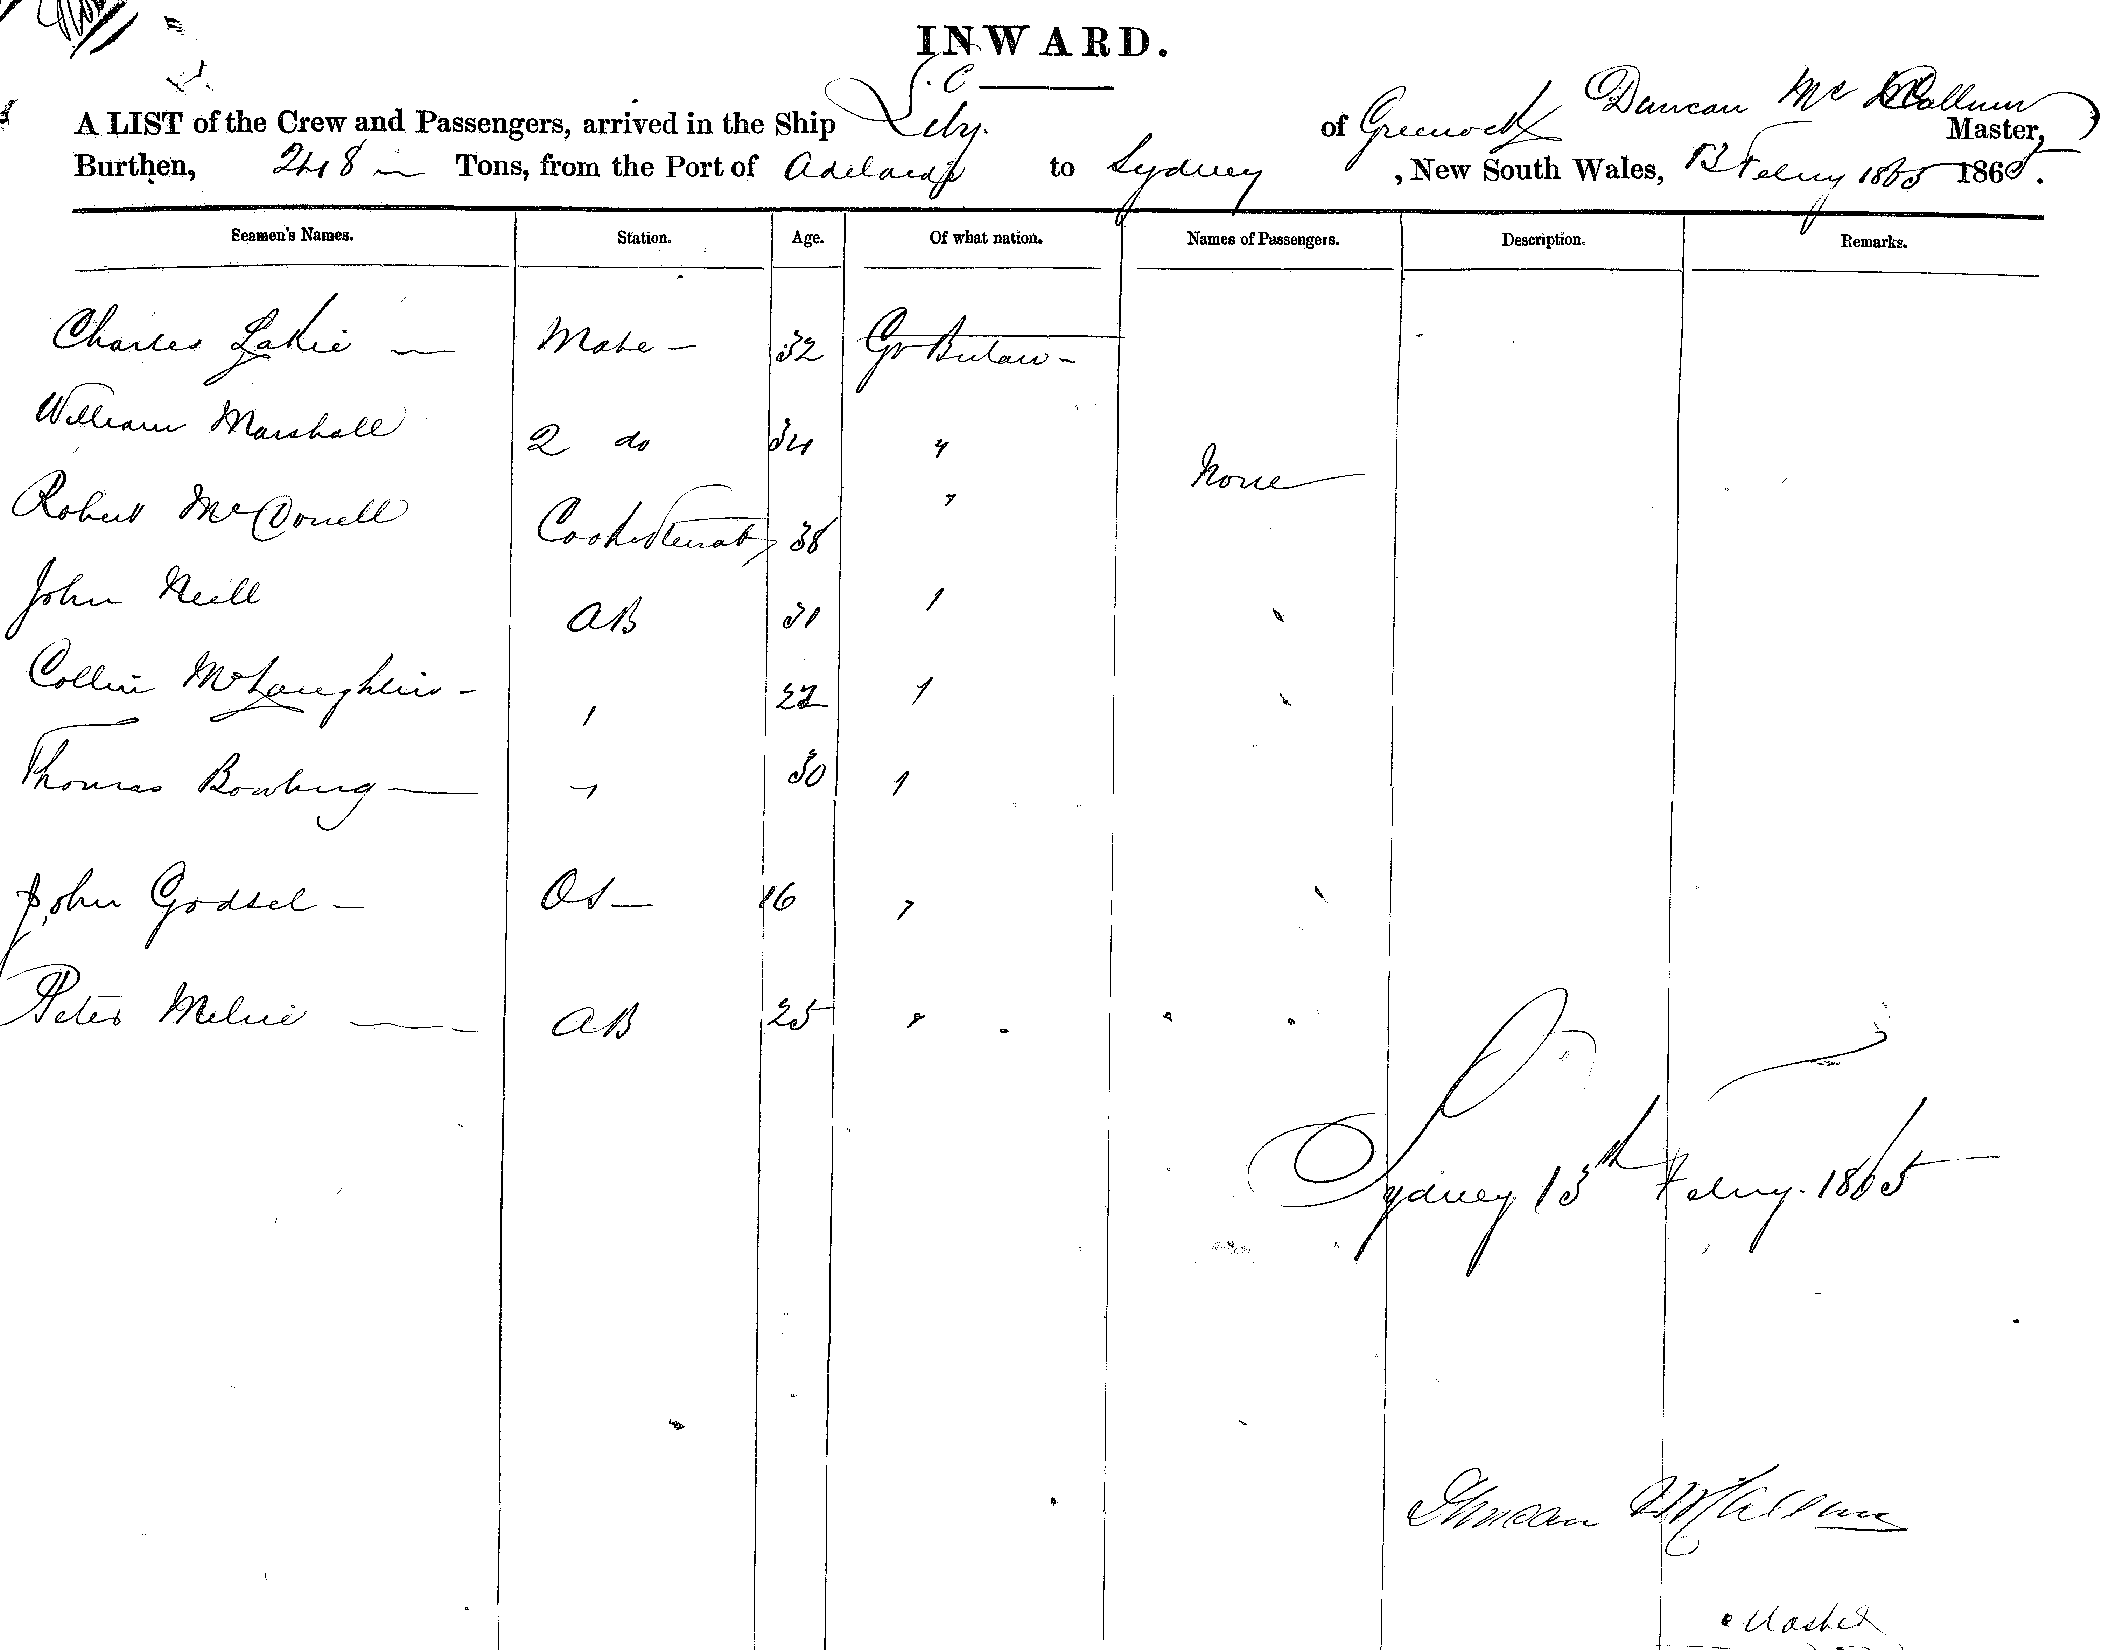 INWARD.
A LIST of the Crew and Passengers, arrived in the Ship of Greenock Duncan Mc Callum Master,
Burthen, 248 Tons, from the Port of Adelaide to Sydney, New South Wales, 13 Febry 1865 1865.
Seamen's Names. Station. Age. Of what nation. Names of Passengers. Description. Remarks.
Charles Lakie — Mate — 32 Gr Britain -
William Marshall 2 do 34 "
None
Robert McDonell Cook & Steward 38 "
John Neill AB 31 "
Collin McLaughlin - " 22 "
Thomas Bowling — " 30 "
John Godsel - OS — 16 "
Peter Melvie — AB 25 "
Sydney 13th Febry. 1865
Duncan McCallum
Master